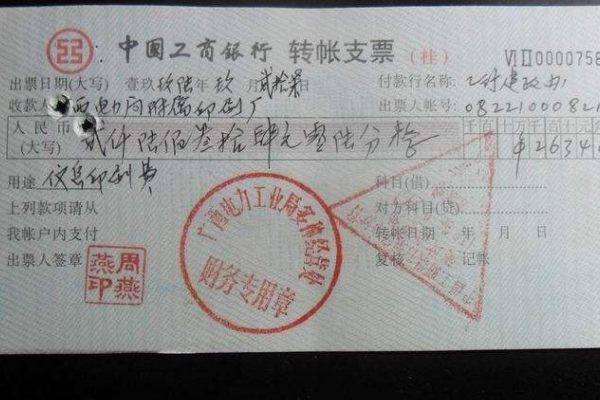 中国工商银行 转帐支票 (桂) VIII0000758
出票日期(大写) 壹玖玖陆年 玖月 贰拾 付款行名称:
收款人 西电力局附属印刷厂 出票人帐号: 0822100082
人民币 千百十万千百十元
(大写) 贰仟陆佰叁拾肆元零陆分 ¥2634
用途 信息印刷费 科目(借)
上列款项请从 对方科目(贷)
我帐户内支付 转帐日期 年 月 日
出票人签章 复核 记帐
周燕燕印
广西电力工业局多种经营处
财务专用章